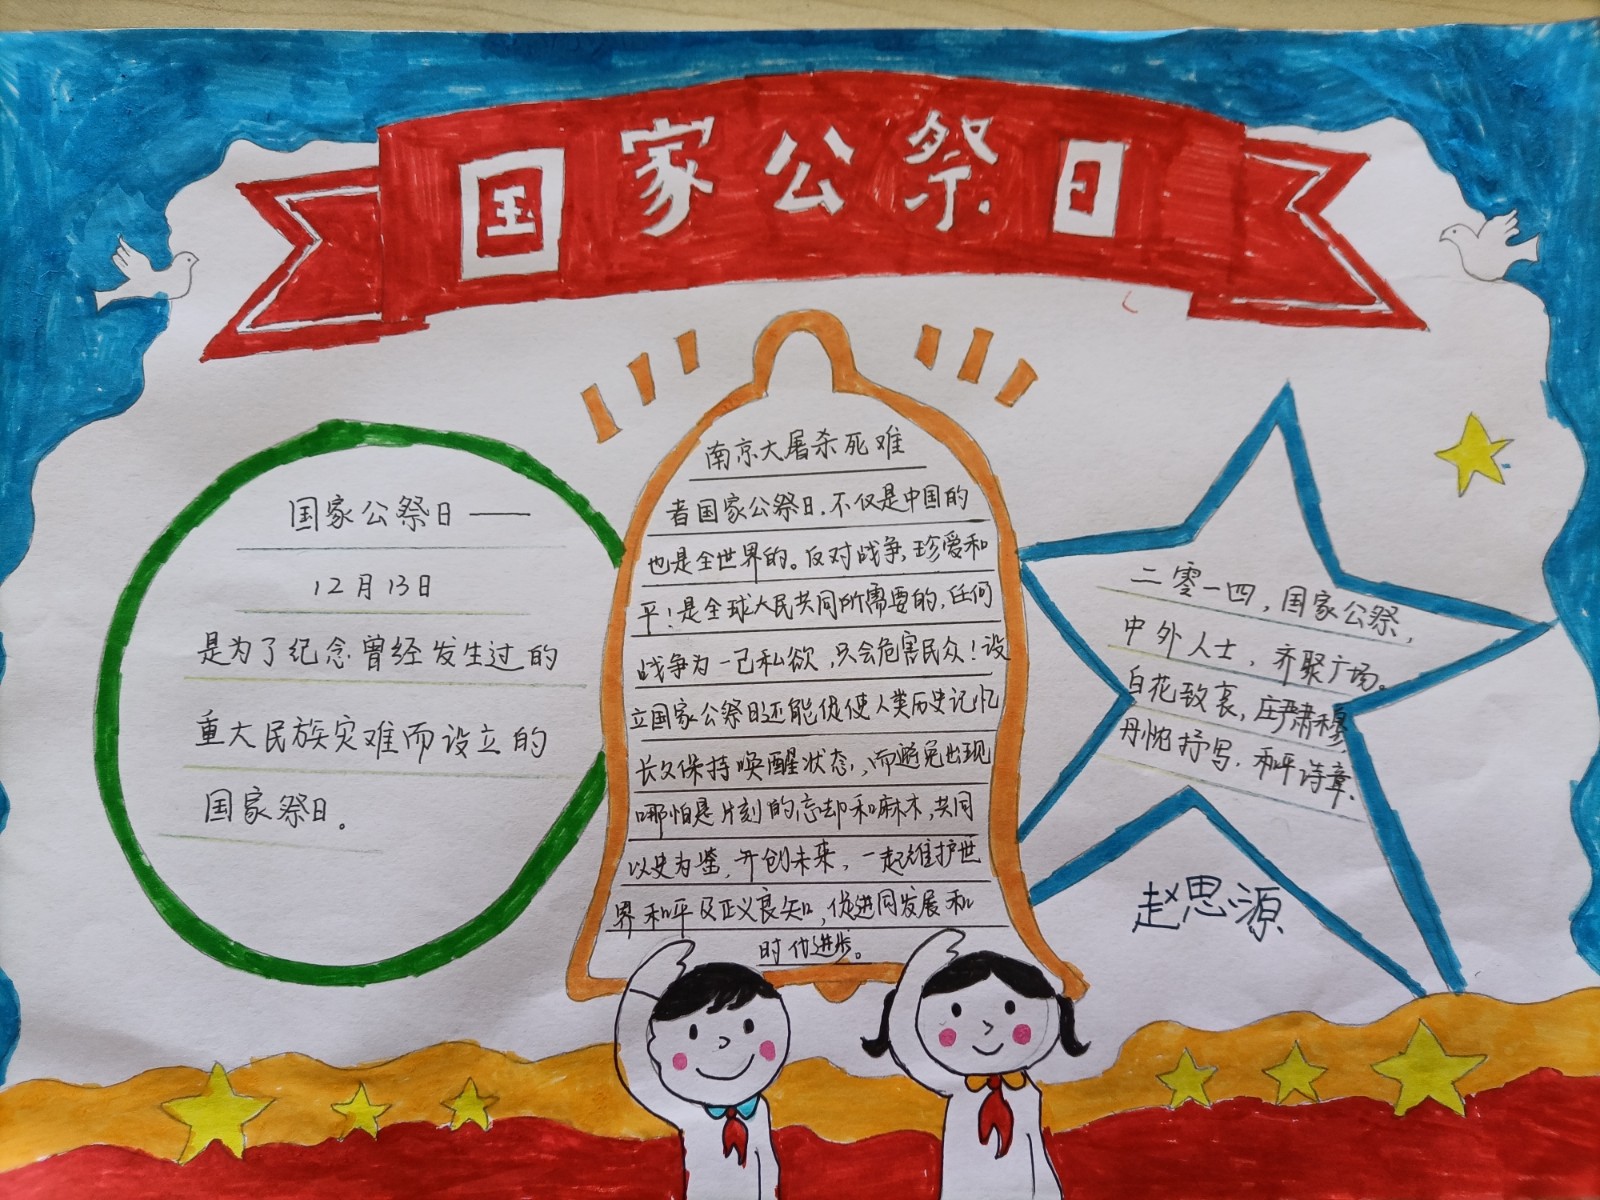 国家公祭日
国家公祭日——
12月13日
是为了纪念曾经发生过的
重大民族灾难而设立的
国家祭日。
南京大屠杀死难
者国家公祭日,不仅是中国的
也是全世界的。反对战争,珍爱和
平!是全球人民共同所需要的,任何
战争为一己私欲,只会危害民众!设
立国家公祭日还能促使人类历史记忆
长久保持唤醒状态,而避免出现
哪怕是片刻的忘却和麻木,共同
以史为鉴,开创未来,一起维护世
界和平及正义良知,促进同发展和
时代进步。
二零一四,国家公祭,
中外人士,齐聚广场。
白花致哀,庄严肃穆,
丹忱抒写,和平诗章.
赵思源